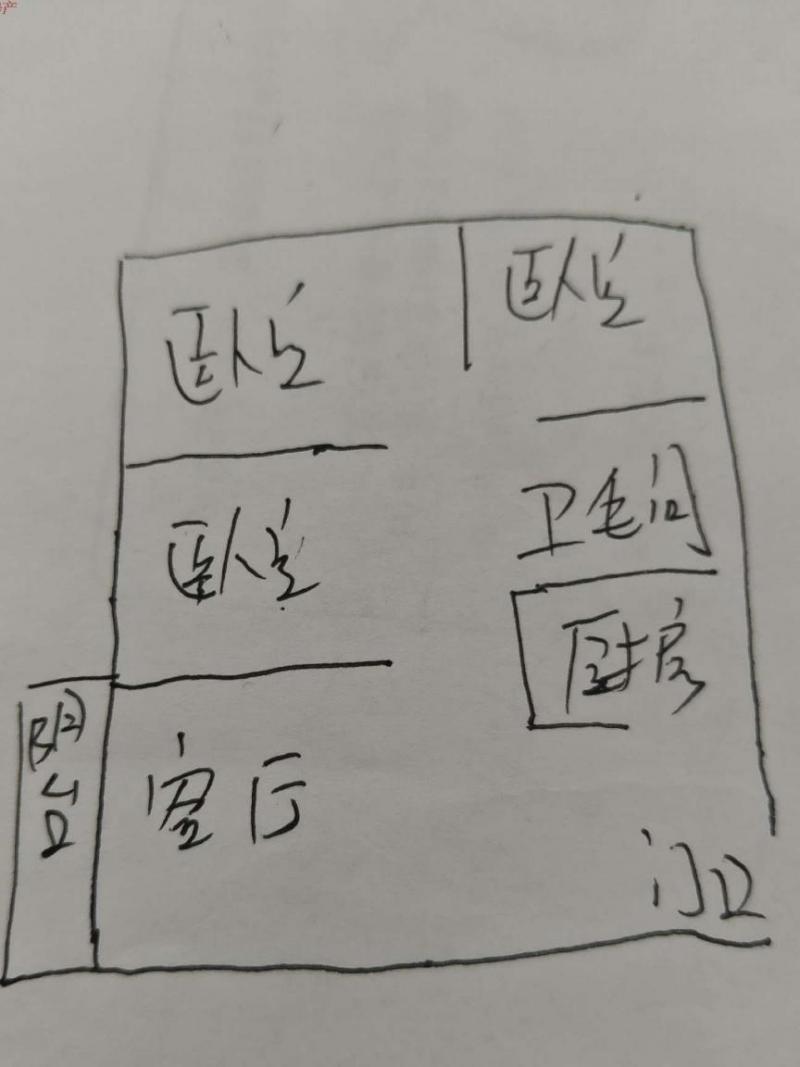 卧室
卧室
卧室
卫生间
厨房
阳台
客厅
门口